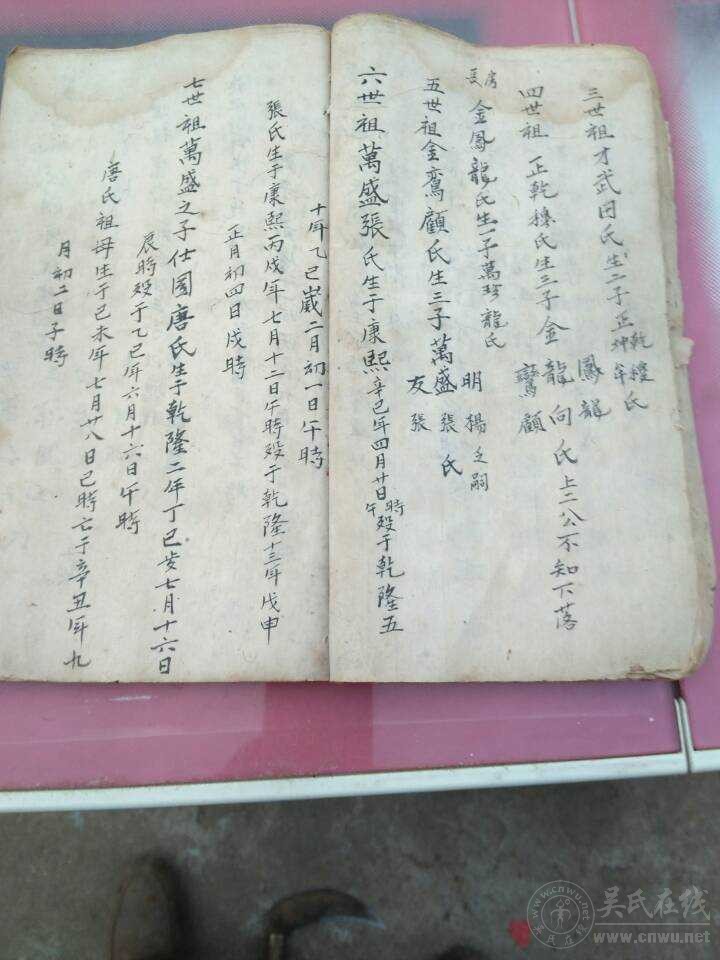 三世祖才武田氏生二子正乾坤穰氏
四世祖正乾穰氏生三子金鳳龍鸞龍向顧氏上二公不知下落
長房金鳳龍氏生一子萬珍龍氏
五世祖金鸞顧氏生三子萬盛明友張楊張氏乏嗣
六世祖萬盛張氏生于康熙辛巳年四月廿日午時殁于乾隆五
十年乙巳歲二月初一日午時
張氏生于康熙丙戌年七月十二日午時殁于乾隆十三年戊申
正月初四日戌時
七世祖萬盛之子仕國唐氏生于乾隆二年丁巳歩七月十六日
辰時殁于乙巳年六月十六日午時
唐氏祖母生于己未年七月廿八日巳時亡于辛丑年九
月初二日子時
吴氏在线
www.cnwu.net